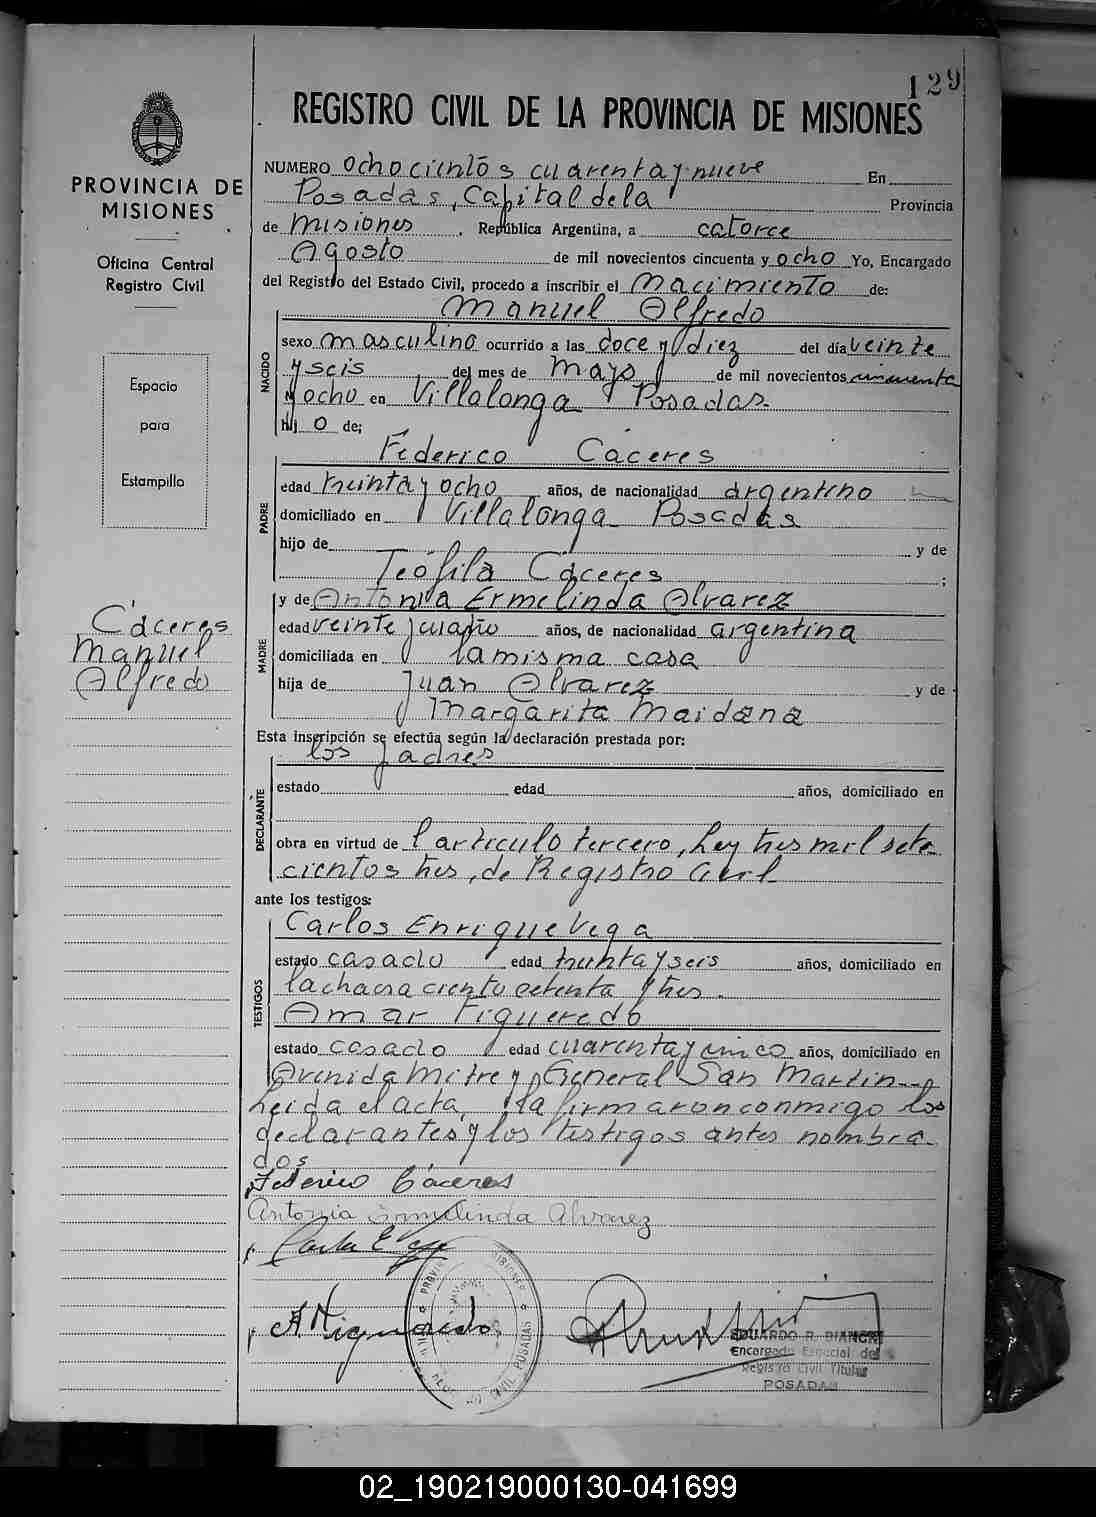 129
REGISTRO CIVIL DE LA PROVINCIA DE MISIONES
PROVINCIA DE
MISIONES
Oficina Central
Registro Civil
Espacio
para
Estampilla
Cáceres
Manuel
Alfredo
NUMERO ochocientos cuarenta y nueve En
Posadas, Capital de la Provincia
de Misiones, República Argentina, a catorce
Agosto de mil novecientos cincuenta y ocho Yo, Encargado
del Registro del Estado Civil, procedo a inscribir el Nacimiento de:
Manuel Alfredo
NACIDO
sexo masculino ocurrido a las doce y diez del día veinte
y seis del mes de Mayo de mil novecientos cincuenta
y ocho en Villalonga Posadas.
hijo de;
Federico Cáceres
PADRE
edad treinta y ocho años, de nacionalidad argentino
domiciliado en Villalonga Posadas
hijo de y de
Teófila Cáceres ;
MADRE
y de Antonia Ermelinda Alvarez
edad veinte y cuatro años, de nacionalidad argentina
domiciliada en la misma casa
hija de Juan Alvarez y de
Margarita Maidana
Esta inscripción se efectúa según la declaración prestada por:
los padres
DECLARANTE
estado edad años, domiciliado en
obra en virtud de l artículo tercero, Ley tres mil sete
cientos tres, de Registro Civil
ante los testigos:
TESTIGOS
Carlos Enrique Vega
estado casado edad treinta y seis años, domiciliado en
la chacra ciento setenta y tres.
Amar Figueredo
estado casado edad cuarenta y cinco años, domiciliado en
Avenida Mitre y General San Martin
Leida el acta, la firmaron conmigo los
declarantes y los testigos antes nombra
dos
Federico Cáceres
Antonia Ermelinda Alvarez
Carlos E Vega
A. Figueredo
EDUARDO R. BIANCHI
Encargado Especial del
Registro Civil Titular
POSADAS
02_190219000130-041699